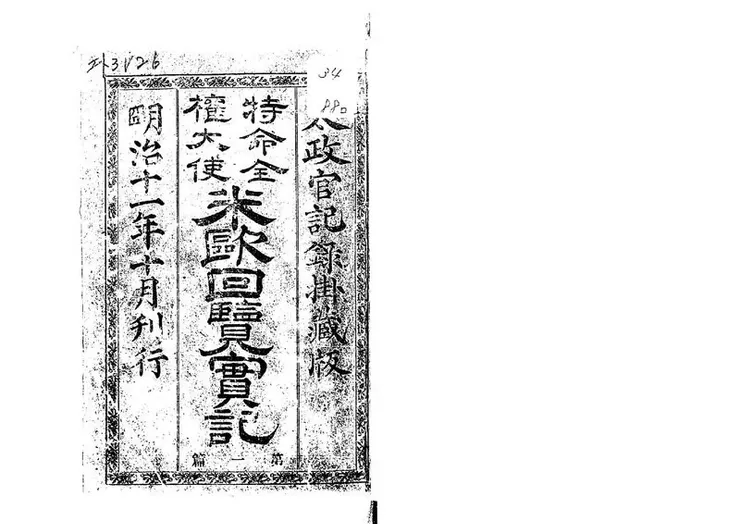 34
880
太政官記錄掛藏版
特命全
權大使
米歐回覽實記
第一篇
明治十一年十月刊行